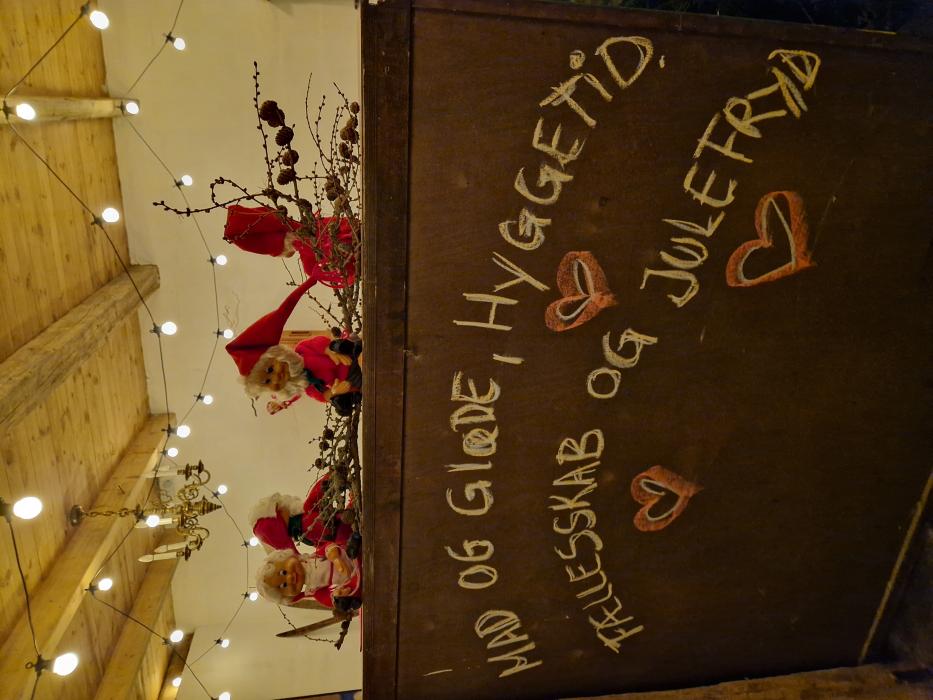 MAD OG GLØDE, HYGGETID.
FÆLLESSKAB OG JULEFRYD